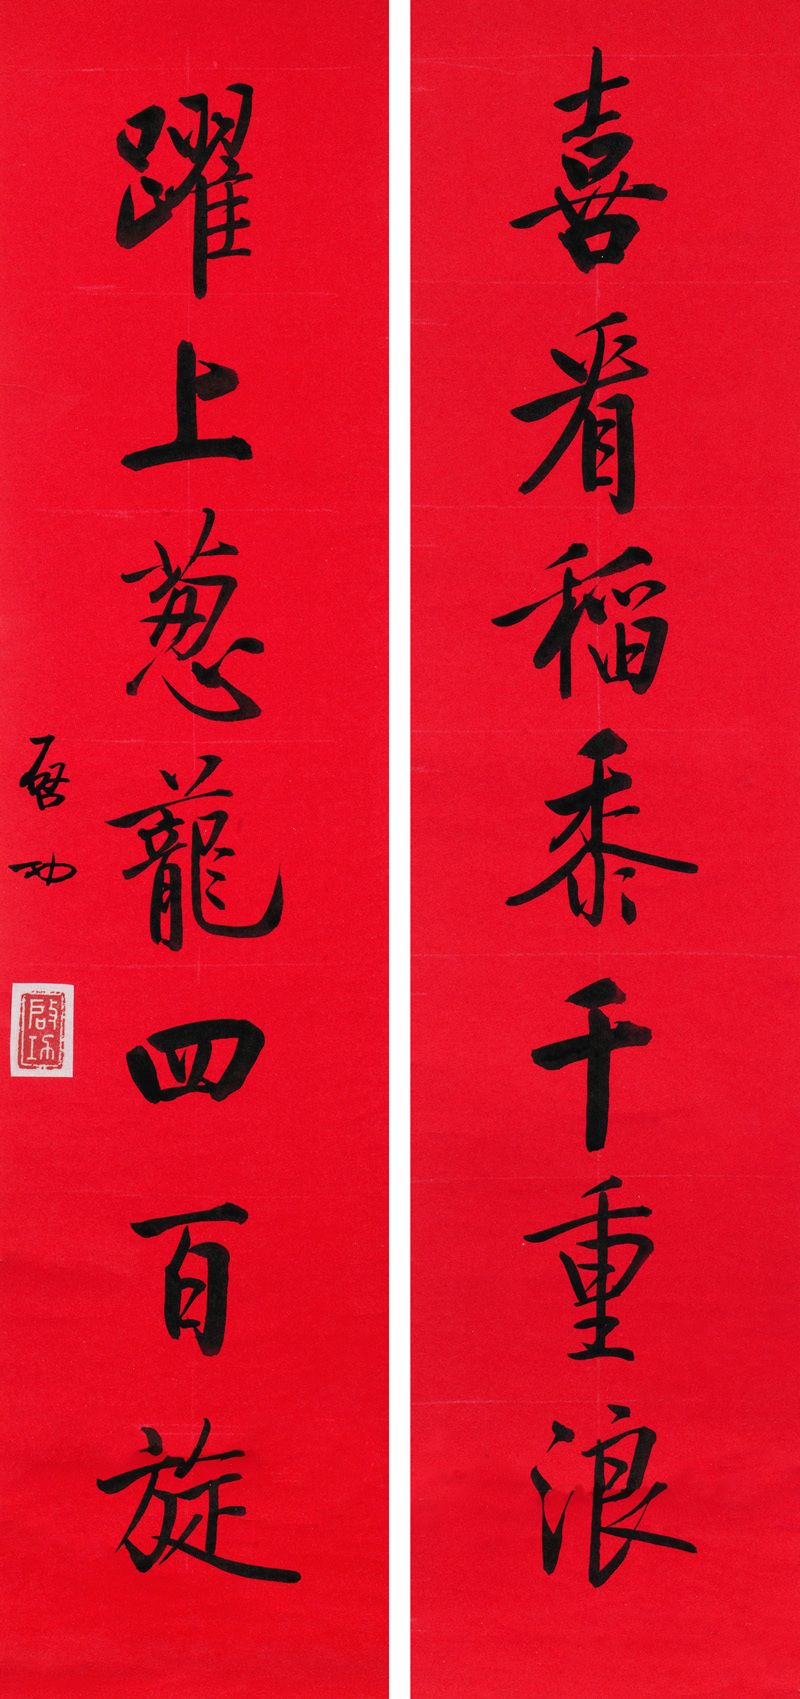 喜看稻黍千重浪
躍上葱蘢四百旋
啓功
啟功